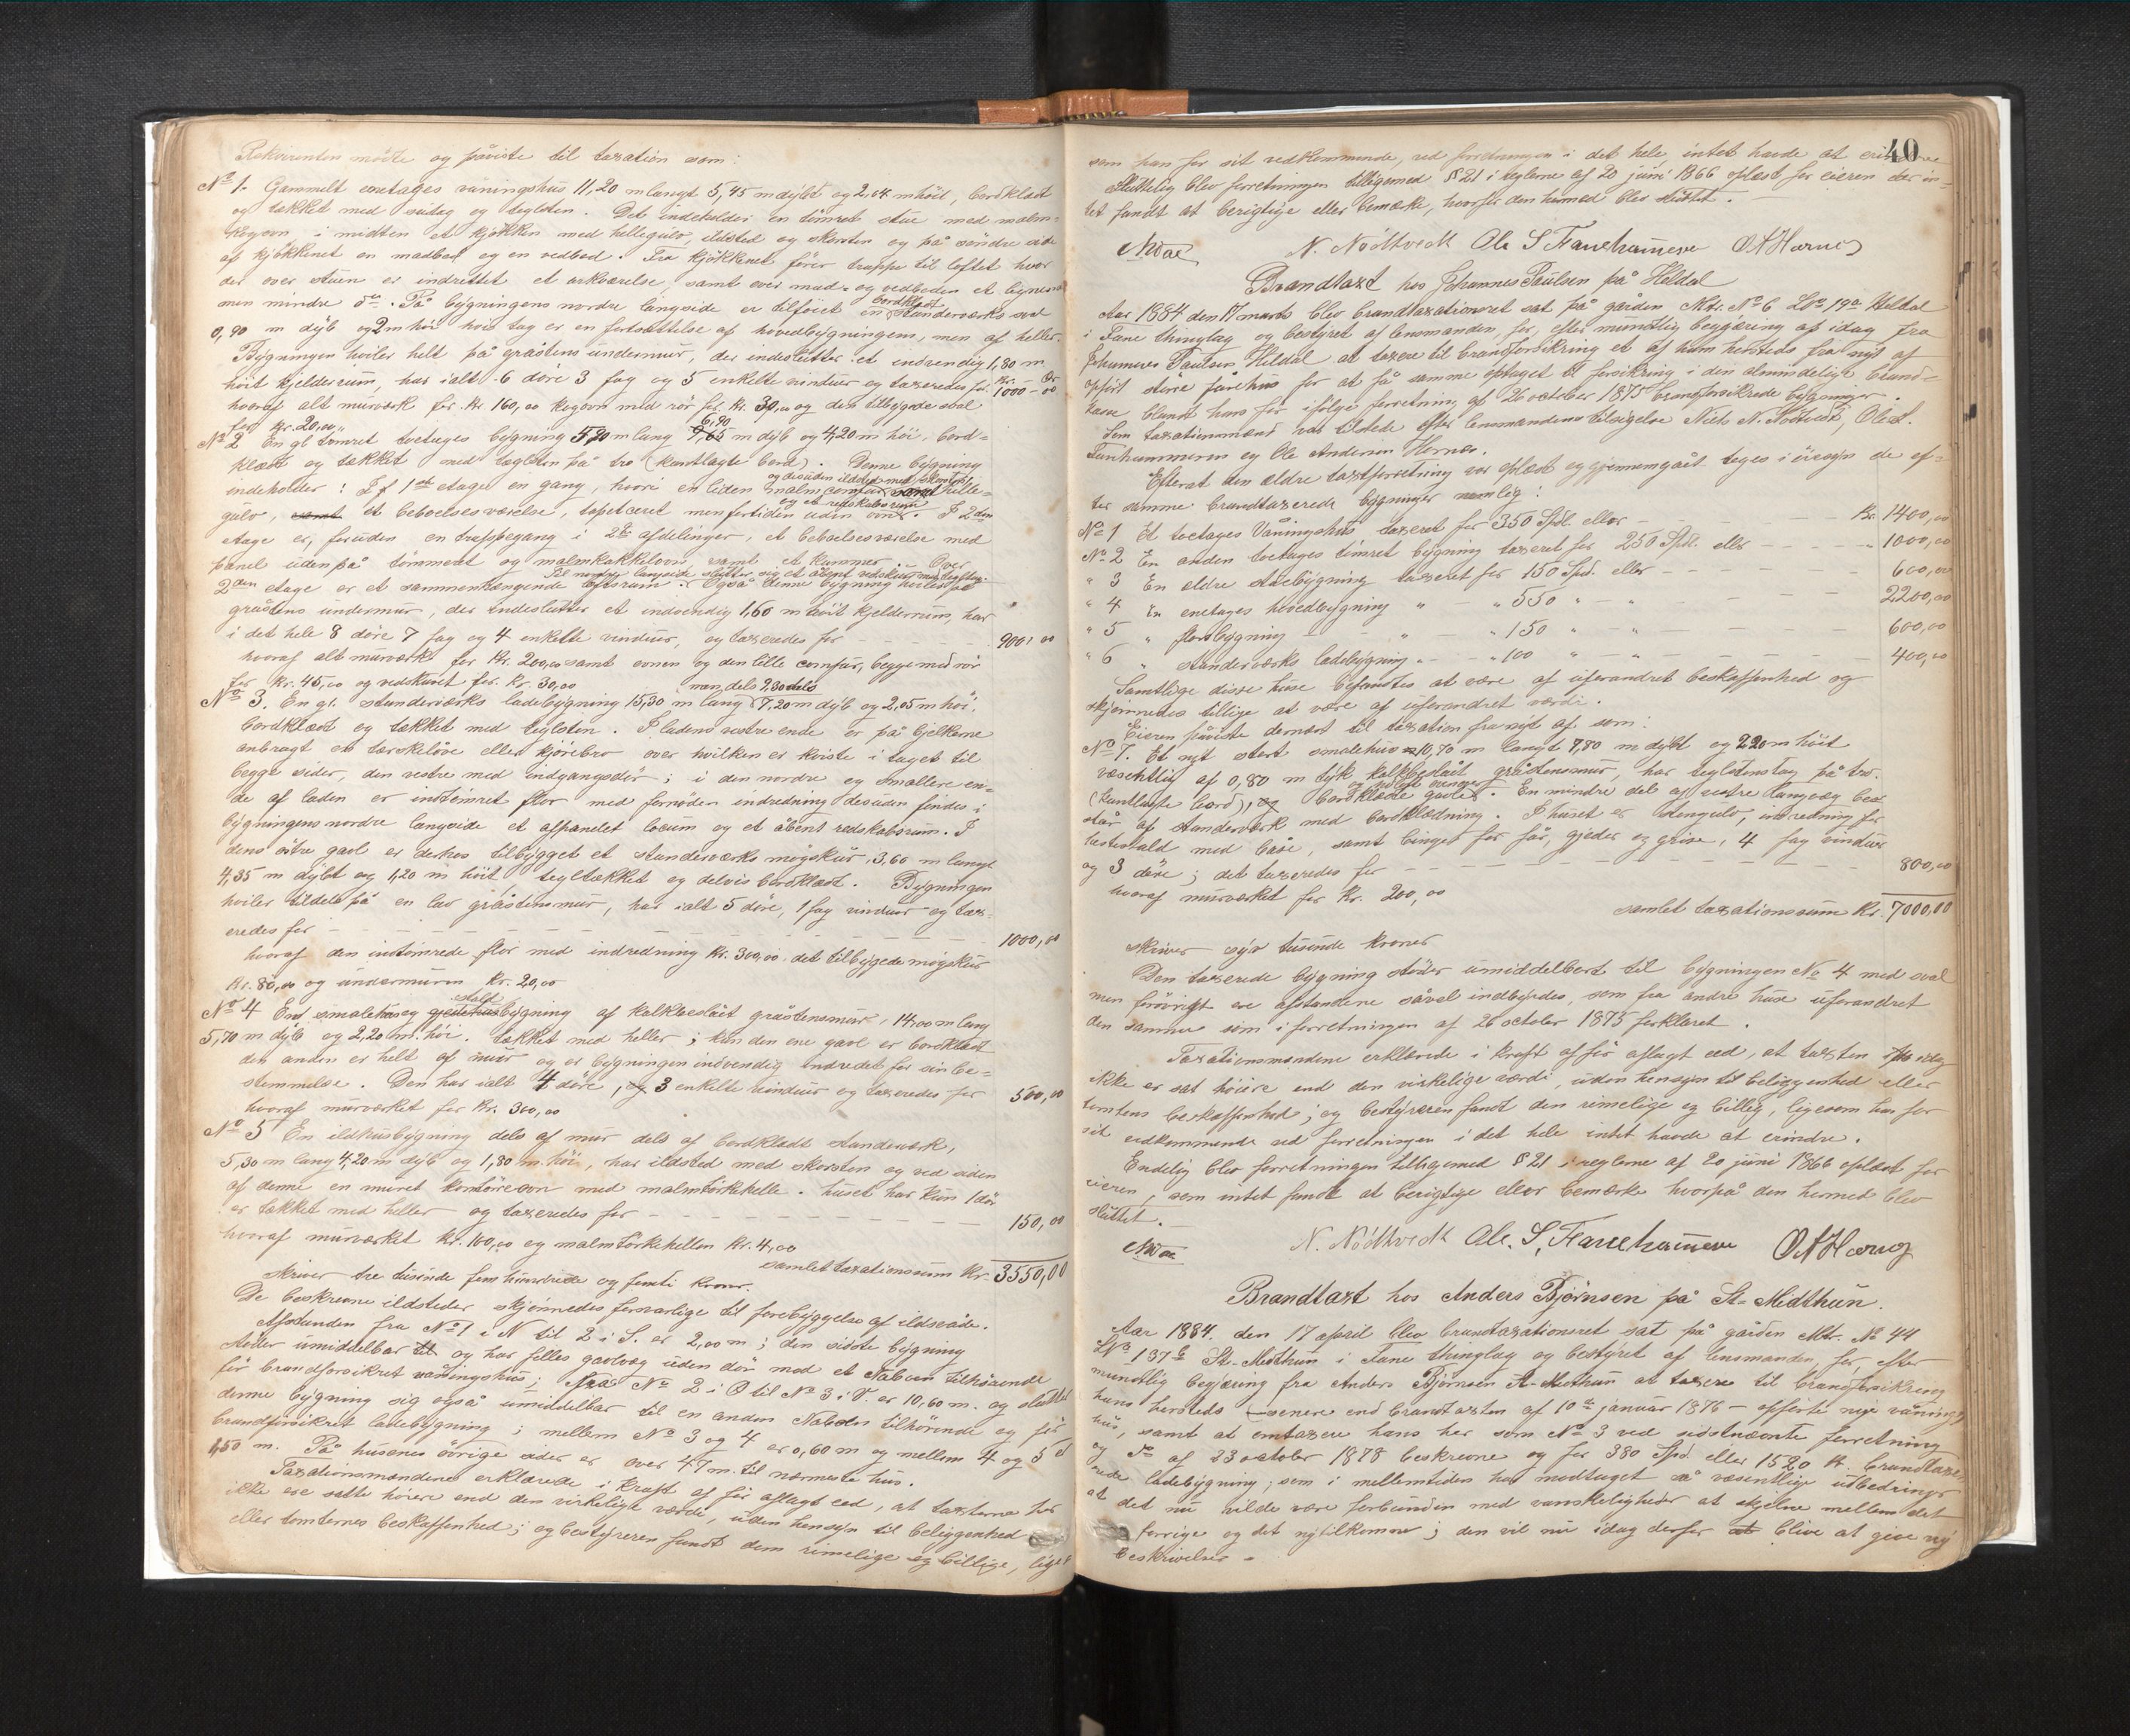 Rekvirenten mödte og påviste til taxation som:
No 1. Gammelt enetages våningshus 11,20 m langt 5,45 m dybt og 2,04 m höit, bordklædt
og tækket med sutag og teglsten. Det indeholder en tömret stue med malm-
kogovn, i midten et kjökken med hellegulv, ildsted og skorsten og på söndre side
af kjökkenet en madbod og en vedbod. Fra kjökkenet fører trappe til loftet hvor
der over stuen er indrettet et arkværelse, samt over mad- og vedboden et lignende
men mindre do. På bygningens nordre langside er tilföiet en bordklædt standerværks sval
0,90 m dyb og 2 m höi hvis tag er en fortsættelse af hovedbygningens, men af heller.
Bygningen hviler helt på gråstens undermur, der indeslutter et indvendig 1,80 m
höit kjelderrum, har ialt 6 döre 3 fag og 5 enkelte vinduer og taxeredes for Kr. 1000-00
hvoraf alt murværk for Kr 160,00 kogovn med rör for Kr. 30,00 og den tilbygde sval
for Kr. 20,00.
No 2 En gl. tömret toetages bygning 5,20 m lang 6,90 m dyb og 4,20 m höi, bord-
klædt og tækket med teglsten på tro (kantlagte bord). Denne bygning
indeholder: I 1ste etage en gang, hvori en liden malmcomfur og desuden ildsted med skorsten, helle-
gulv, samt et beboelsesværelse, tapetceret men fortiden uden ovn og et redskabsrum. I 2den
etage er, foruden en trappegang i 2de afdelinger, et beboelsesværelse med
panel udenpå tömmeret og malmkakkelovn samt et kammer. Over
2den etage er et sammenhængende loftsrum. Til nordre langside slutter sig et åbent vedskur med tegltag. Også denne bygning hviler på
gråstens undermur, der indeslutter et indvendig 1,60 m höit kjelderrum, har
i det hele 8 döre 7 fag og 4 enkelte vinduer, og taxeredes for 900,00
hvoraf alt murværk for Kr. 200,00 samt ovnen og den lille comfur, begge med rör
for Kr. 45,00 og vedskuret for Kr. 30,00
No 3. En gl. standerværks ladebygning 15,30 m lang 7,20 m dyb og 2,05 m höi,
bordklædt og tækket med teglsten. I ladens vestre ende er på bjelkerne
anbragt en tærskelåve eller kjörebro over hvilken er kviste i taget til
begge sider, den vestre med indgangsdör; i den nordre og smallere en-
de af laden er indtömret flor med fornöden indredning desuden findes i
bygningens nordre langside et afpanelet locum og et åbent redskabsrum. I
dens östre gavl er derhos tilbygget et standerværks mögskur, 3,60 m langt
4,35 m dybt og 1,20 m höit tegltækket og delvis bordklædt. Bygningen
hviler tildels på en lav gråstensmur, har ialt 5 döre, 1 fag vinduer og tax-
eredes for 1000,00
hvoraf den indtömrede flor med indredning Kr. 300,00, det tilbyggede mögskur
Kr. 80,00 og undermuren Kr. 20,00
No 4 En smalehus og stald bygning af kalkbeslåit gråstensmur, 14,00 m lang
5,70 m dyb og 2,20 m. höi. tækket med heller; kun den ene gavl er bordklædt
den anden er helt af mur og er bygningen indvendig indredet for sin be-
stemmelse. Den har ialt 4 döre, og 3 enkelte vinduer og taxeredes for 500,00
hvoraf murværket for Kr. 300,00
No 5 En ildhusbygning dels af mur dels af bordklædt standerværk,
5,30 m lang 4,20 m dyb og 1,80 m. höi, har ildsted med skorsten og ved siden
af denne en muret korntörreovn med malmtörkehelle. huset har kun 1 dör
er tækket med heller og taxeredes for 150,00
hvoraf murværket Kr. 100,00 og malmtörkehellen Kr. 4,00
samlet taxationssum Kr. 3550,00
skriver tre tusinde femhundrede og femti kroner.
De beskrevne ildsteder skjönnedes forsvarlige til forebyggelse af ildsvåde.
Afstanden fra No 1 i N til 2 i S. er 2,00 m; den sidste bygning
stöder umiddelbar til og har fælles gavlvæg uden dör med et Naboen tilhörende
för brandforsikret våningshus; fra No 2 i O til No 3 i V. er 10,60 m. og slutter
denne bygning sig også umiddelbar til en anden Nabos tilhörende og för
brandforsikret ladebygning; mellem No 3 og 4 er 0,60 m og mellem 4 og 5 er
1,50 m. På husenes övrige sider er over 47 m. til nærmeste hus.
Taxationsmændene erklærede i kraft af för aflagt eed, at taxterne her
ikke ere satte höiere end den virkelige værdi, uden hensyn til beliggenhed
eller tomternes beskaffenhed; og bestyreren fandt dem rimelige og billige, lige
40
som han for sit vedkommende, ved forretningen i det hele, intet havde at erindre
Sluttelig blev forretningen tilligemed § 21 i reglerne af 20 juni 1866 oplæst for eieren der in-
tet fandt at berigtige eller bemærke, hvorfor den hermed blev sluttet.
N. Nödtvedt Ole S Fanehammeren OAHernes
Brandtaxt hos Johannes Paulsen på Heldal
Aar 1884 den 17 marts blev brandtaxationsret sat på gården Mtr. No 6 LNo 19a Heldal
i Fane thinglag og bestyret af lensmanden, for, efter mundtlig begjæring af idag fra
Johannes Paulsen Heldal at taxere til brandforsikring et af ham hersteds fra nyt af
opfört större fårehus for at få samme optaget til forsikring i den almindelige brand-
kasse blandt hans för ifölge forretning af 26 october 1875 brandforsikrede bygninger.
Som taxationsmænd var tilstede efter lensmandens tilsigelse Niels N. Nödtvedt, Ole S.
Fanhammeren og Ole Andersen Hernes.
Efterat den ældre taxtforretning var oplæst og gjennemgået toges i öiesyn de ef-
ter samme brandtaxerede bygninger nemlig:
No 1 Et toetages Våningshus taxeret for 350 Spdl. eller Kr. 1400,00
No 2 En anden toetages tömret bygning taxeret for 250 Spdl. eller " 1000,00
" 3 En eldre stuebygning taxeret for 150 Spd. eller 600,00
" 4 En enetages hovedbygning " " 550 " " 2200,00
" 5 " florsbygning " " 150 " " 600,00
" 6 " standerværks ladebygning " " 100 " " 400,00
Samtlige disse huse befandtes at være af uforandret beskaffenhed og
skjönnedes tillige at være af uforandret værdi.
Eieren påviste dernæst til taxation fra nyt af som:
No 7. Et nyt stort smalehus 10,70 m langt 7,80 m dybt og 2,20 m höit
væsentlig af 0,80 m tyk kalkbeslåit gråstensmur, har teglstenstag på tro.
(kantlagte bord), og bordklædte gavle. En mindre del af vestre langvæg be-
står af standerværk med bordklædning. I huset er stengulv, indredning for
hestestald med båse, samt binger for får, gjeder og grise, 4 fag vinduer
og 3 döre; det taxeredes for 800,00
hvoraf murværket for Kr. 200,00
samlet taxationssum Kr. 7000,00
skriver syv tusinde kroner
Den taxerede bygning stöder umiddelbart til bygningen No 4 med sval
men forövrigt ere afstandene såvel indbyrdes, som fra andre huse uforandret
den samme som i forretningen af 26 october 1875 forklaret.
Taxationsmændene erklærede i kraft af för aflagt eed, at taxten idag
ikke er sat höiere end den virkelige værdi, uden hensyn til beliggenhed eller
tomtens beskaffenhed; og bestyreren fandt den rimelige og billig, ligesom han for
sit vedkommende ved forretningen i det hele intet havde at erindre.
Endelig blev forretningen tilligemed § 21 i reglerne af 20 juni 1866 oplæst for
eieren, som intet fandt at berigtige eller bemærke hvorpå den hermed blev
sluttet.
N. Nödtvedt Ole. S, Fanehammeren OAHernes
Brandtaxt hos Anders Bjørnsen på St- Midthun.
Aar 1884. den 17 april blev brandtaxationsret sat på gården Mtr. No 44
LNo 137c St- Midthun i Fane thinglag og bestyret af lensmanden, for, efter
mundtlig begjæring fra Anders Bjørnsen St- Midthun at taxere til brandforsikring
hans hersteds - senere end brandtaxten af 10de januar 1876 - opförte nye vånings-
hus, samt at omtaxere hans her som No 3 ved sidstnævnte forretning
og do af 23 october 1878 beskrevne og for 380 Spd eller 1520 Kr. brandtaxe-
rede ladebygning; som i mellemtiden har modtaget så væsentlige utbedringer
at det nu vilde være forbunden med vanskeligheder at skjelne mellem det
forrige og det nytilkomne; den vil nu idag derfor at blive at give ny
beskrivelse.